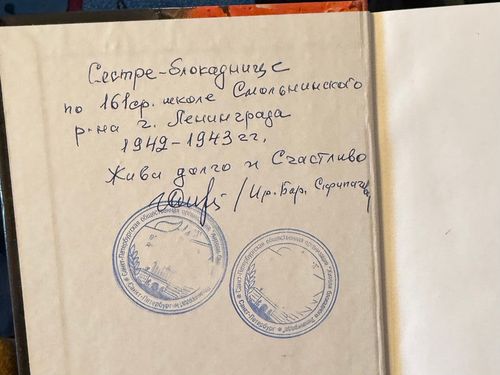 Сестре-блокаднице
по 161 ср. школе Смольнинского
р-на г. Ленинграда
1942-1943 гг.
Живи долго и Счастливо
/ Ир. Бар.
Санкт-Петербургская общественная организация
Санкт-Петербург
Санкт-Петербургская общественная организация "Жители блокадного Ленинграда"
Санкт-Петербург